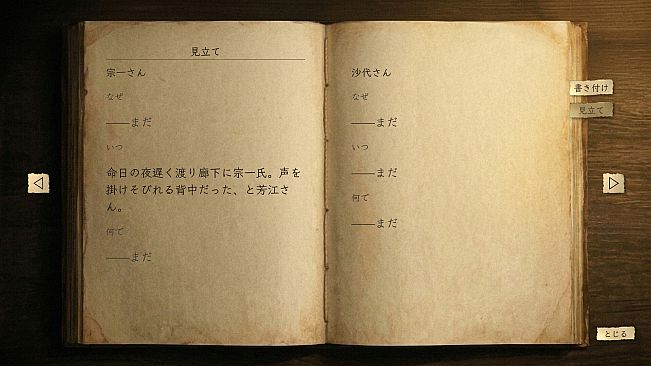 見立て
宗一さん
なぜ
――まだ
いつ
命日の夜遅く渡り廊下に宗一氏。声を
掛けそびれる背中だった、と芳江さ
ん。
何で
――まだ
沙代さん
なぜ
――まだ
いつ
――まだ
何で
――まだ
書き付け
見立て
とじる